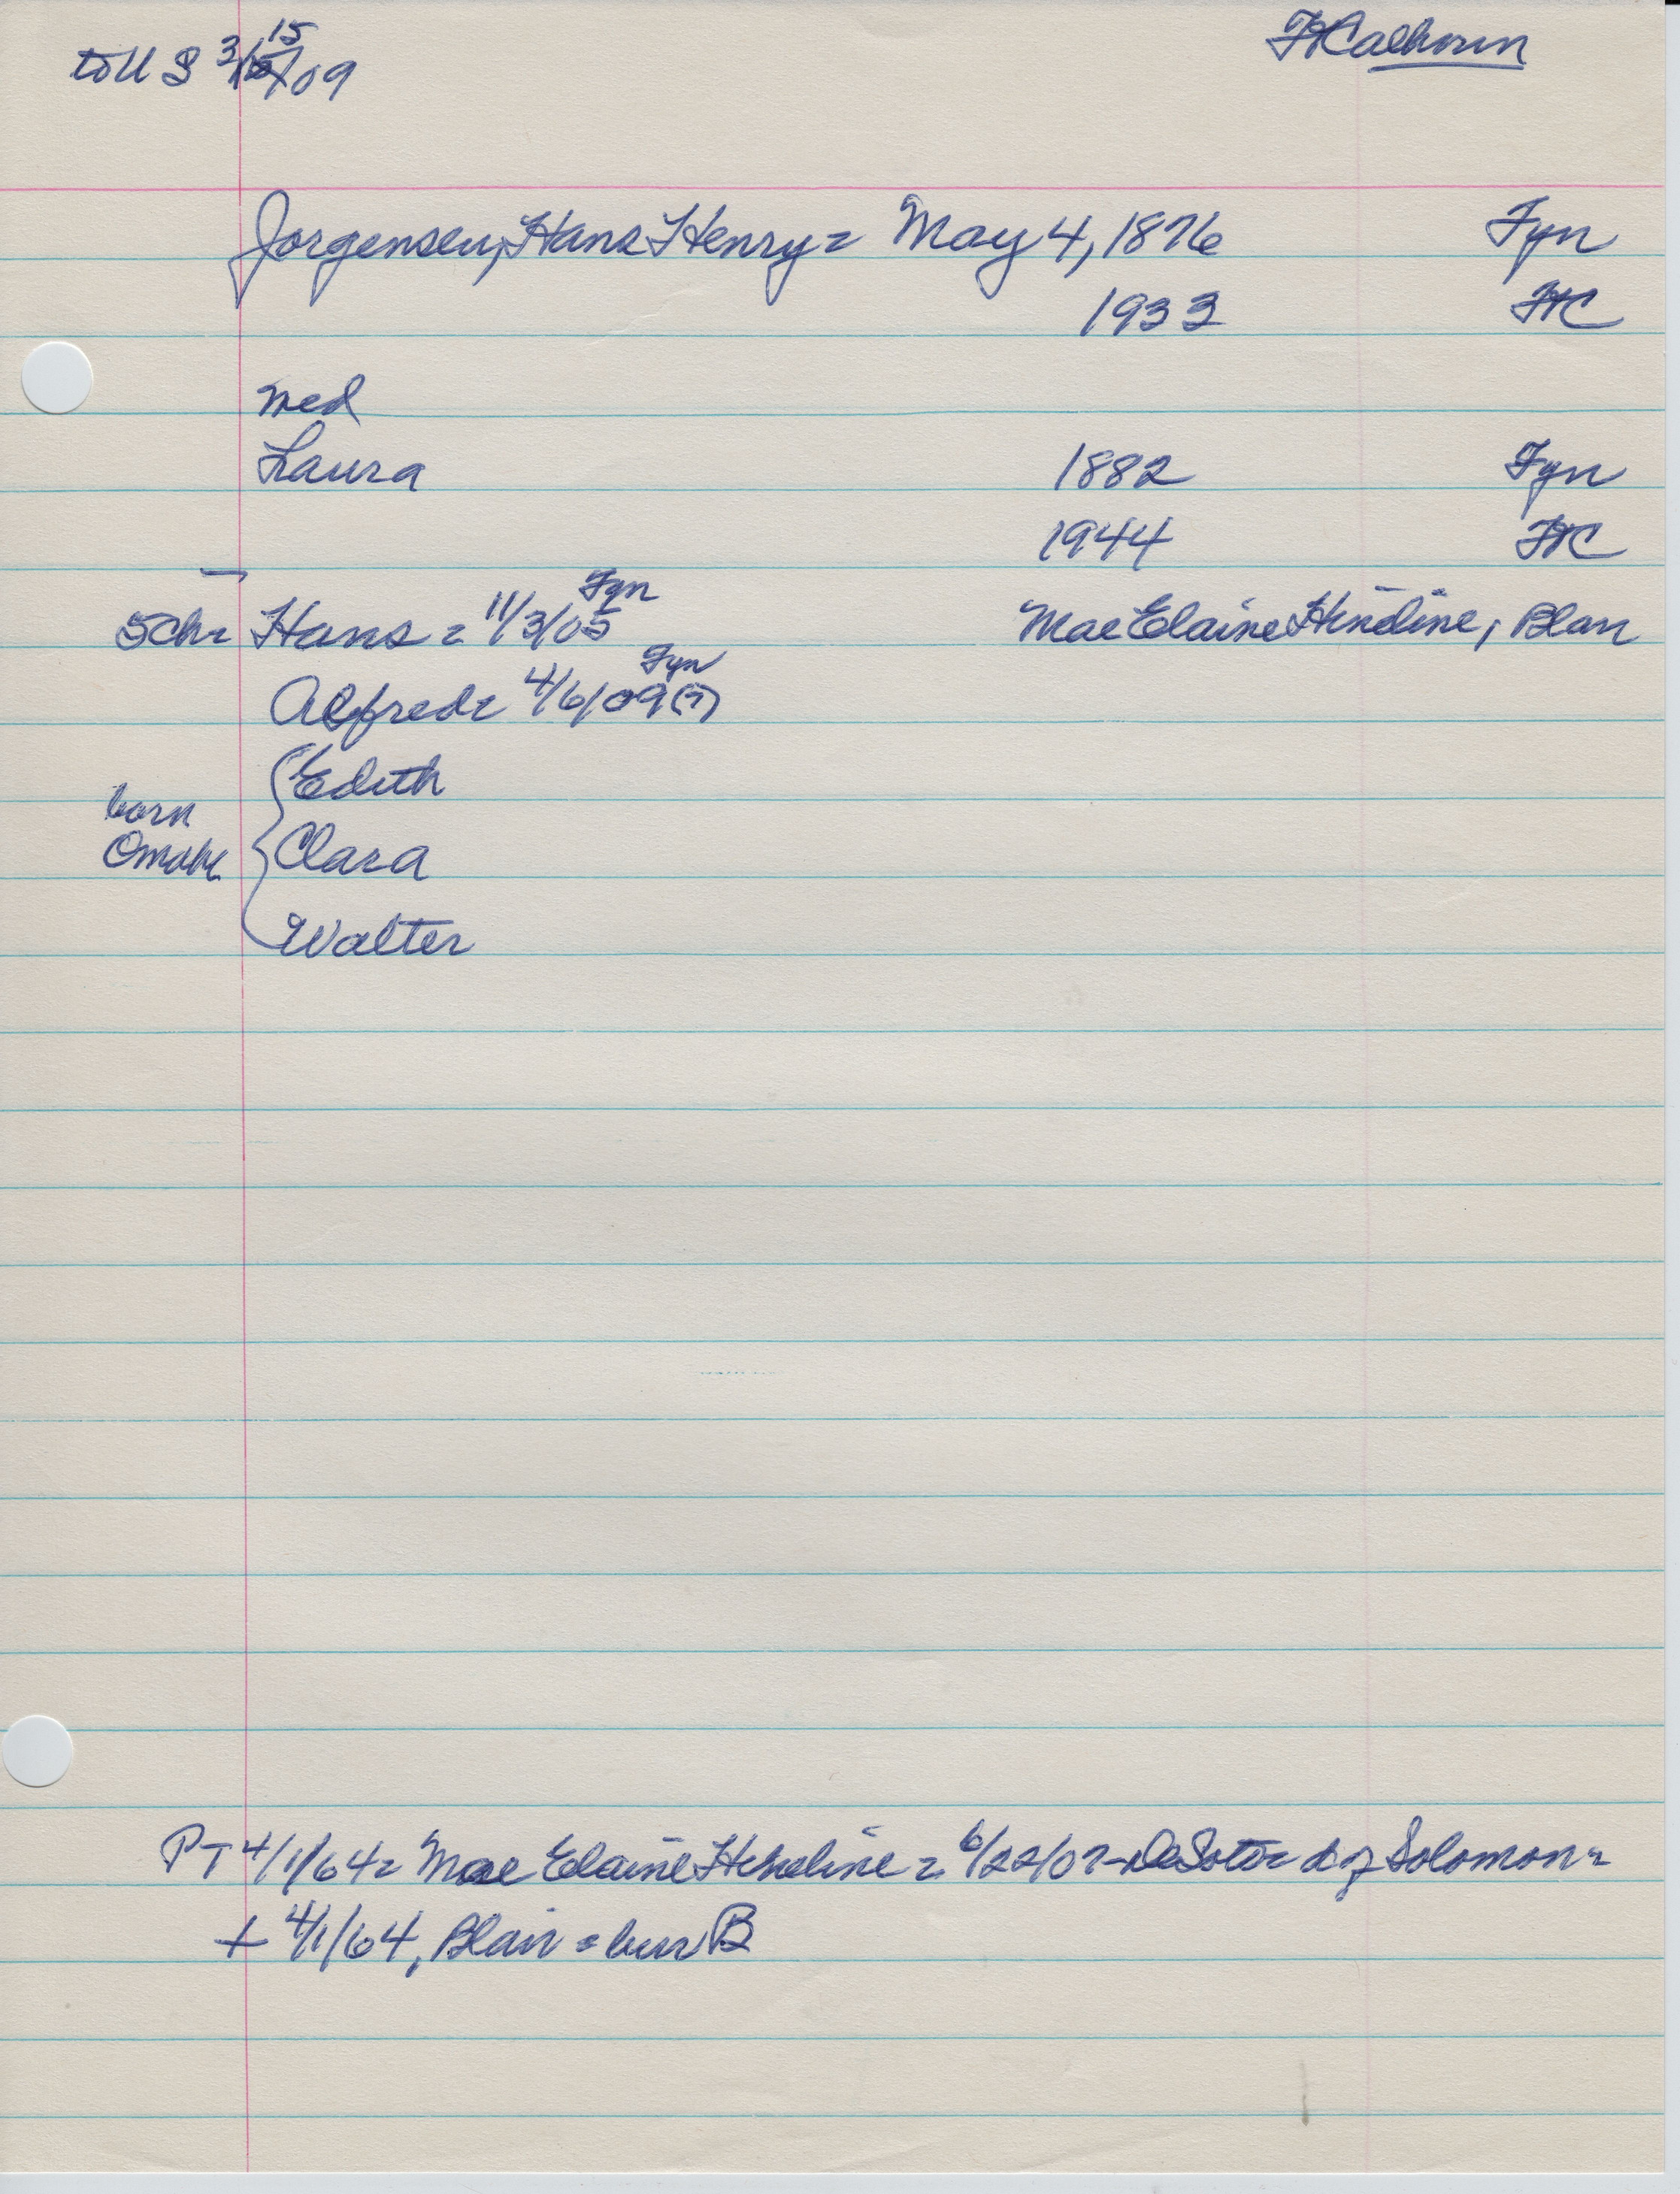 to U S 3/15/09
Ft Calhoun
Jorgensen, Hans Henry = May 4, 1876 Fyn
1933 Ft C
med
Laura 1882 Fyn
1944 Ft C
5 Ch = Hans = 11/3/05 Fyn Mae Elaine Hineline, Blair
Alfred = 4/6/09(?) Fyn
Edith
born
Omaha Clara
Walter
PT 4/1/64 = Mae Elaine Hineline = 6/22/07 - DeSoto = d of Solomon =
+ 4/1/64, Blair = bur B